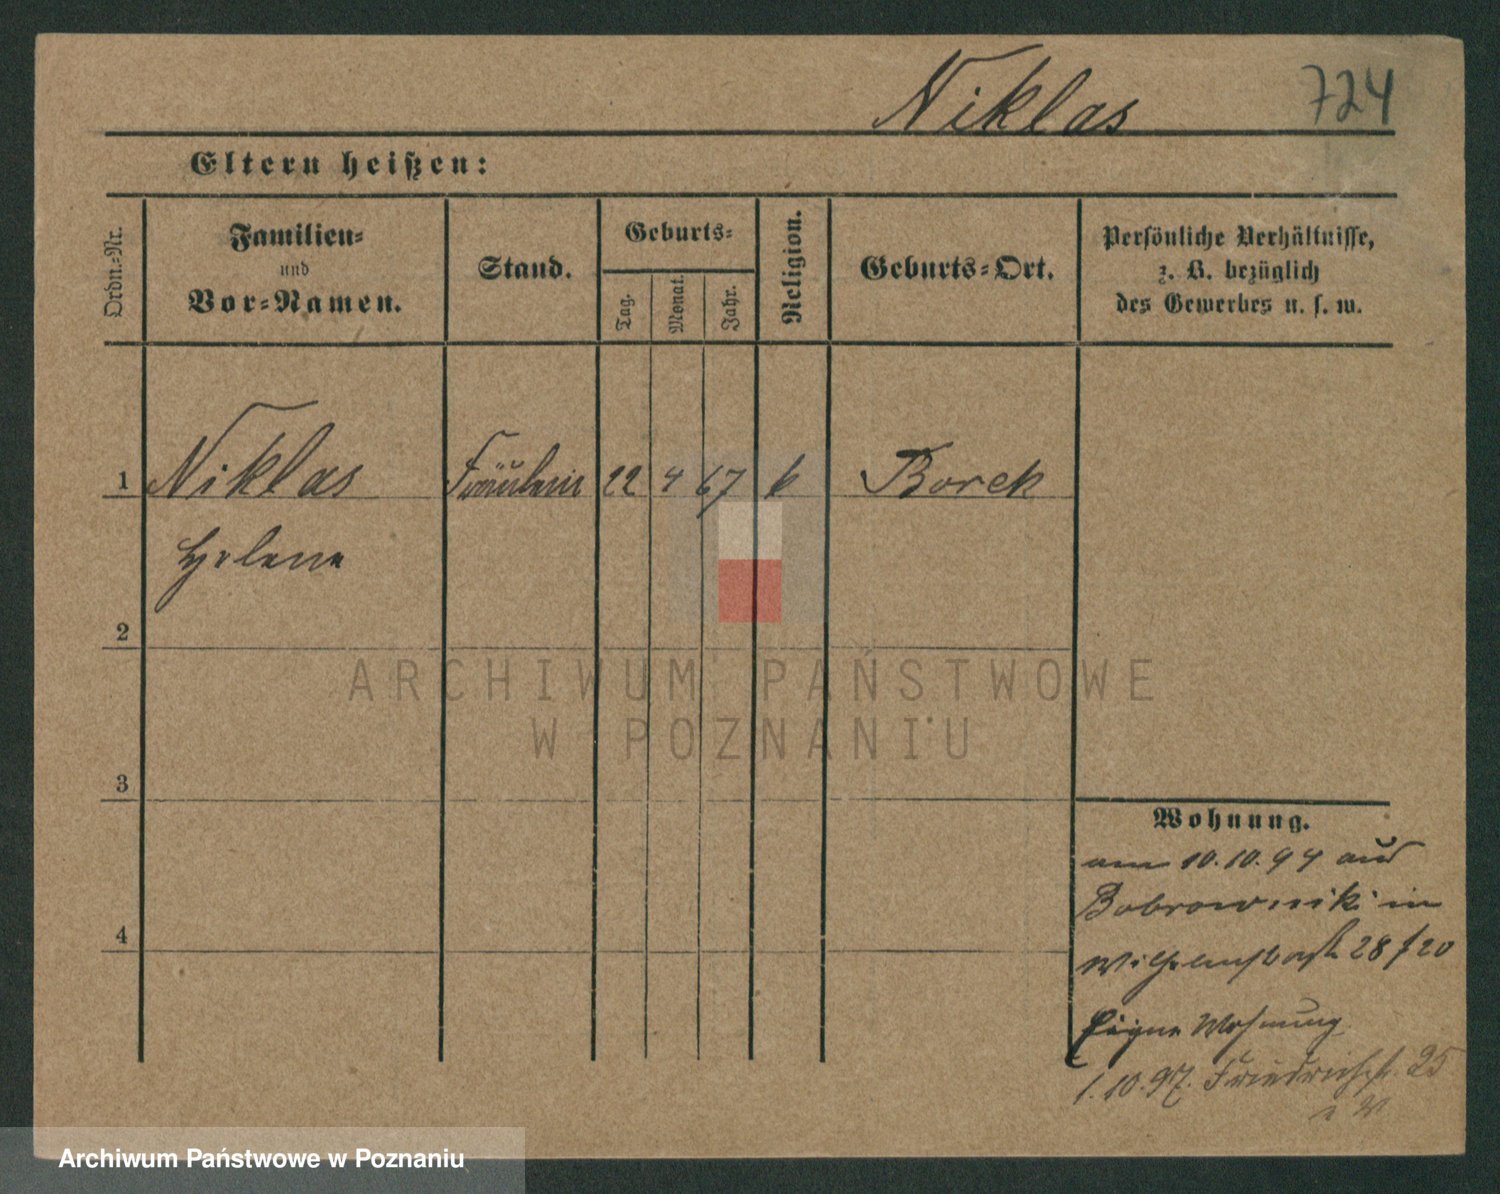 Niklas 724
Eltern heißen:
Ordn.-Nr.
Familien-
und
Vor-Namen.
Stand.
Geburts-
Tag.
Monat.
Jahr.
Religion.
Geburts-Ort.
Persönliche Verhältnisse,
z. B. bezüglich
des Gewerbes u. s. w.
1 Niklas Fräulein 22 4 67 k Borek
Helene
2
3
4
Wohnung.
am 10.10.94 aus
Bobrowniki in
28/20
Eigene Wohnung
1.10.97. Friedrichstr. 25
ARCHIWUM PAŃSTWOWE
W POZNANIU
Archiwum Państwowe w Poznaniu